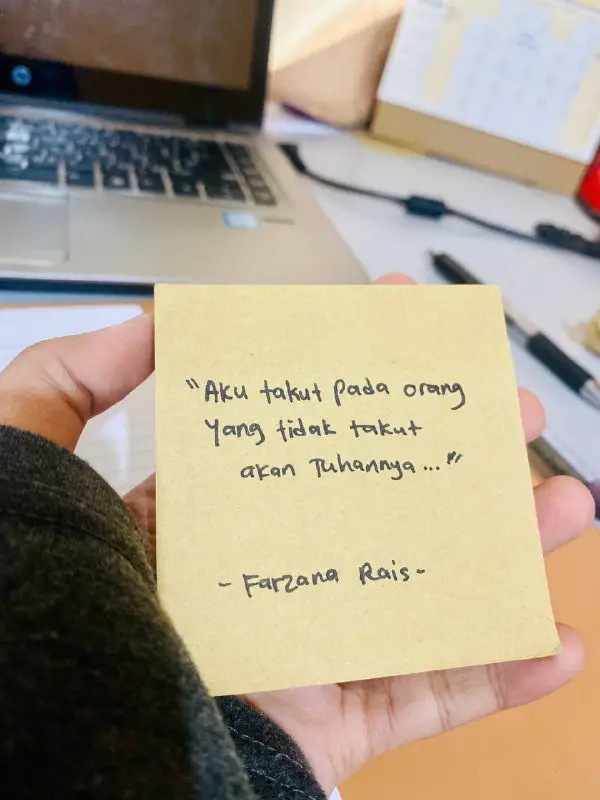 "Aku takut pada orang
yang tidak takut
akan Tuhannya..."
- Farzana Rais-